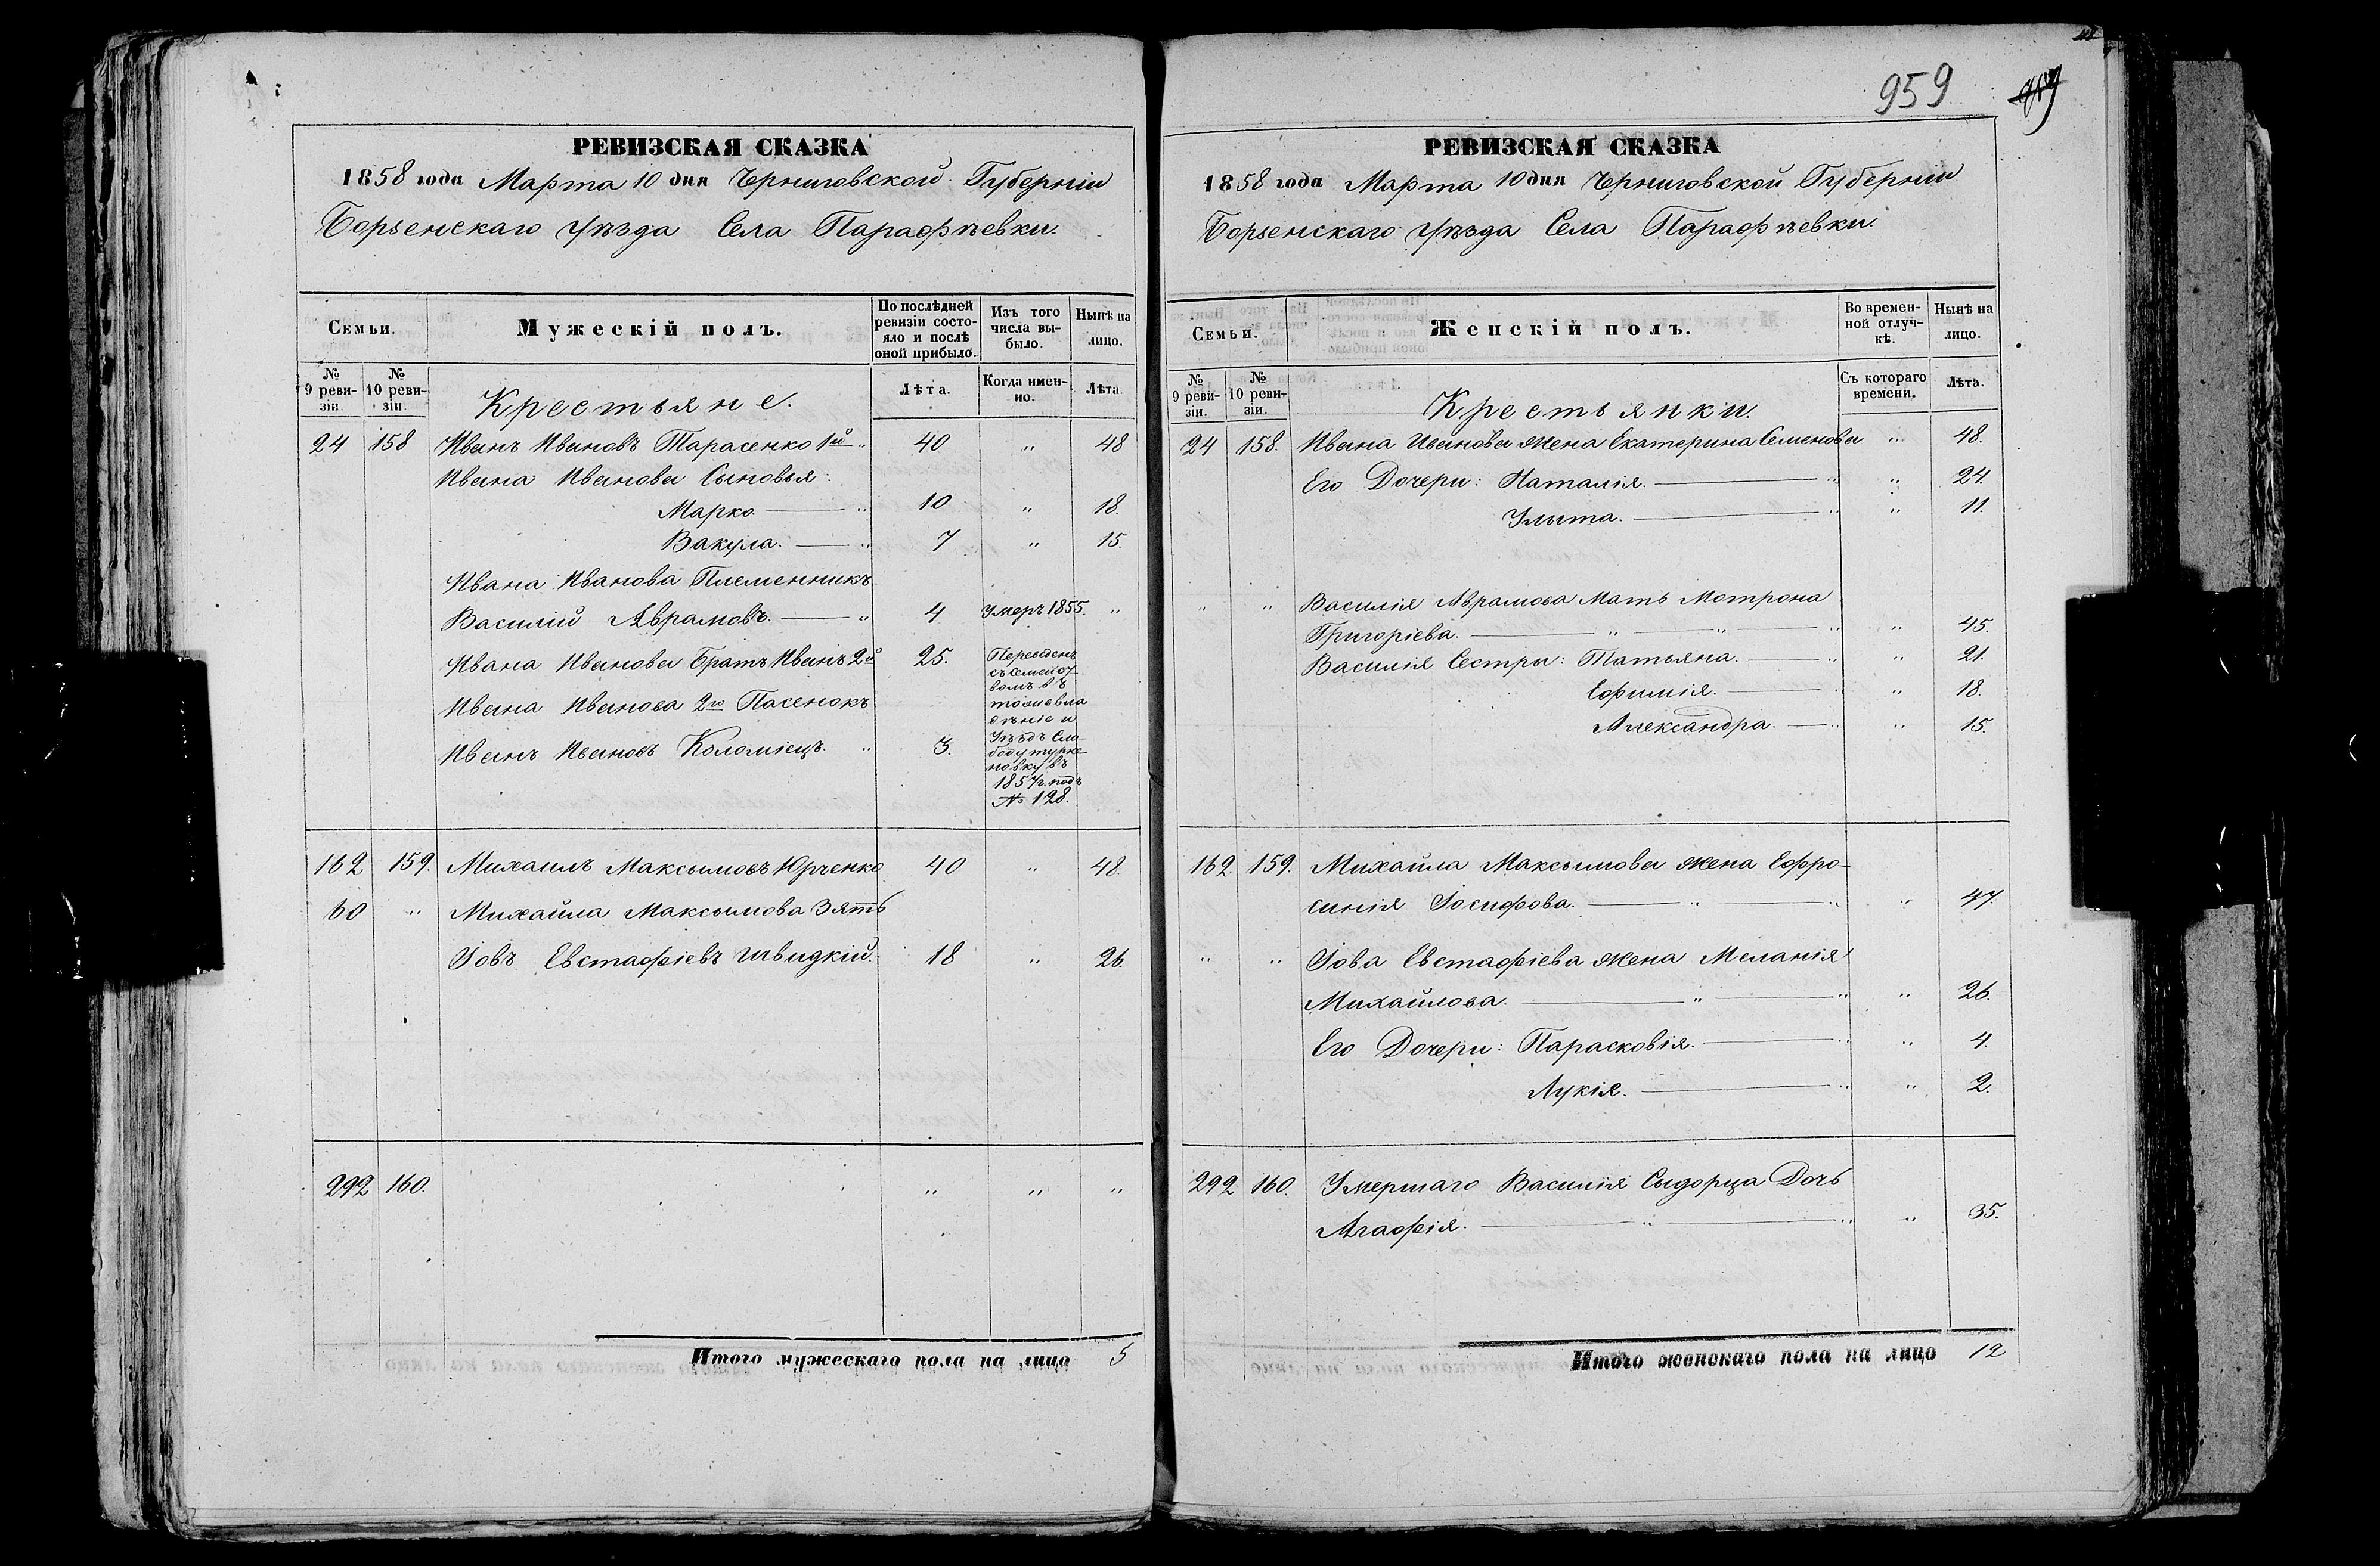 959
РЕВИЗСКАЯ СКАЗКА
1858 года Марта 10 дня Черниговской Губерніи
Борзенскаго уѣзда Села Парафѣевки.
Семьи.
Мужескій полъ.
По послѣдней ревизіи состояло и послѣ оной прибыло.
Изъ того числа выбыло.
Нынѣ на лицо.
№ 9 ревизіи.
№ 10 ревизіи.
Крестьяне.
Лѣта.
Когда именно.
Лѣта.
24 158 Иванъ Ивановъ Тарасенко 1й „ 40 „ 48
Ивана Иванова Сыновья:
Марко. — „ 10 „ 18.
Вакула. — „ 7 „ 15.
Ивана Иванова Племенникъ
Василій Аврамовъ. — „ 4 Умеръ 1855. „
Ивана Иванова Братъ Иванъ 2й 25.
Ивана Иванова 2го Пасенокъ
Иванъ Ивановъ Коломіецъ. „ 3.
Переведенъ
съ Семейст
вомъ въ
тоже вла
дѣніе и
Уѣздъ Сло
боду
новку въ
1857г. подъ
№ 128.
162 159. Михаилъ Максимовъ Юрченко 40 „ 48.
60 „ Михайла Максимова Зять
Іовъ Евстафіевъ Швидкій. 18 „ 26.
292 160. „ „ „
Итого мужескаго пола на лицо 5
РЕВИЗСКАЯ СКАЗКА
1858 года Марта 10 дня Черниговской Губерніи
Борзенскаго уѣзда Села Парафѣевки.
Семьи.
Женскій полъ.
Во временной отлучкѣ.
Нынѣ на лицо.
№ 9 ревизіи.
№ 10 ревизіи.
Крестьянки.
Съ котораго времени.
Лѣта.
24 158. Ивана Иванова жена Екатерина Семенова „ 48.
Его Дочери: Наталія. — „ „ 24.
Улыта. — „ „ 11.
„ „ Василія Аврамова Мать Мотрона
Григоріева. — „ — „ — „ „ 45.
Василія Сестры: Татьяна. — „ „ 21.
Ефимія. — „ „ 18.
Александра. — „ „ 15.
162. 159. Михайла Максимова жена Ефро-
синія Іосифова. — „ — „ „ 47.
„ „ Іова Евстафіева жена Меланія
Михайлова. — „ — „ „ 26.
Его Дочери: Парасковія. — „ „ 4.
Лукія. — „ „ 2.
292 160. Умершаго Василія Сыдорца Дочь
Агафія. — „ — „ „ 35.
Итого женскаго пола на лицо 12